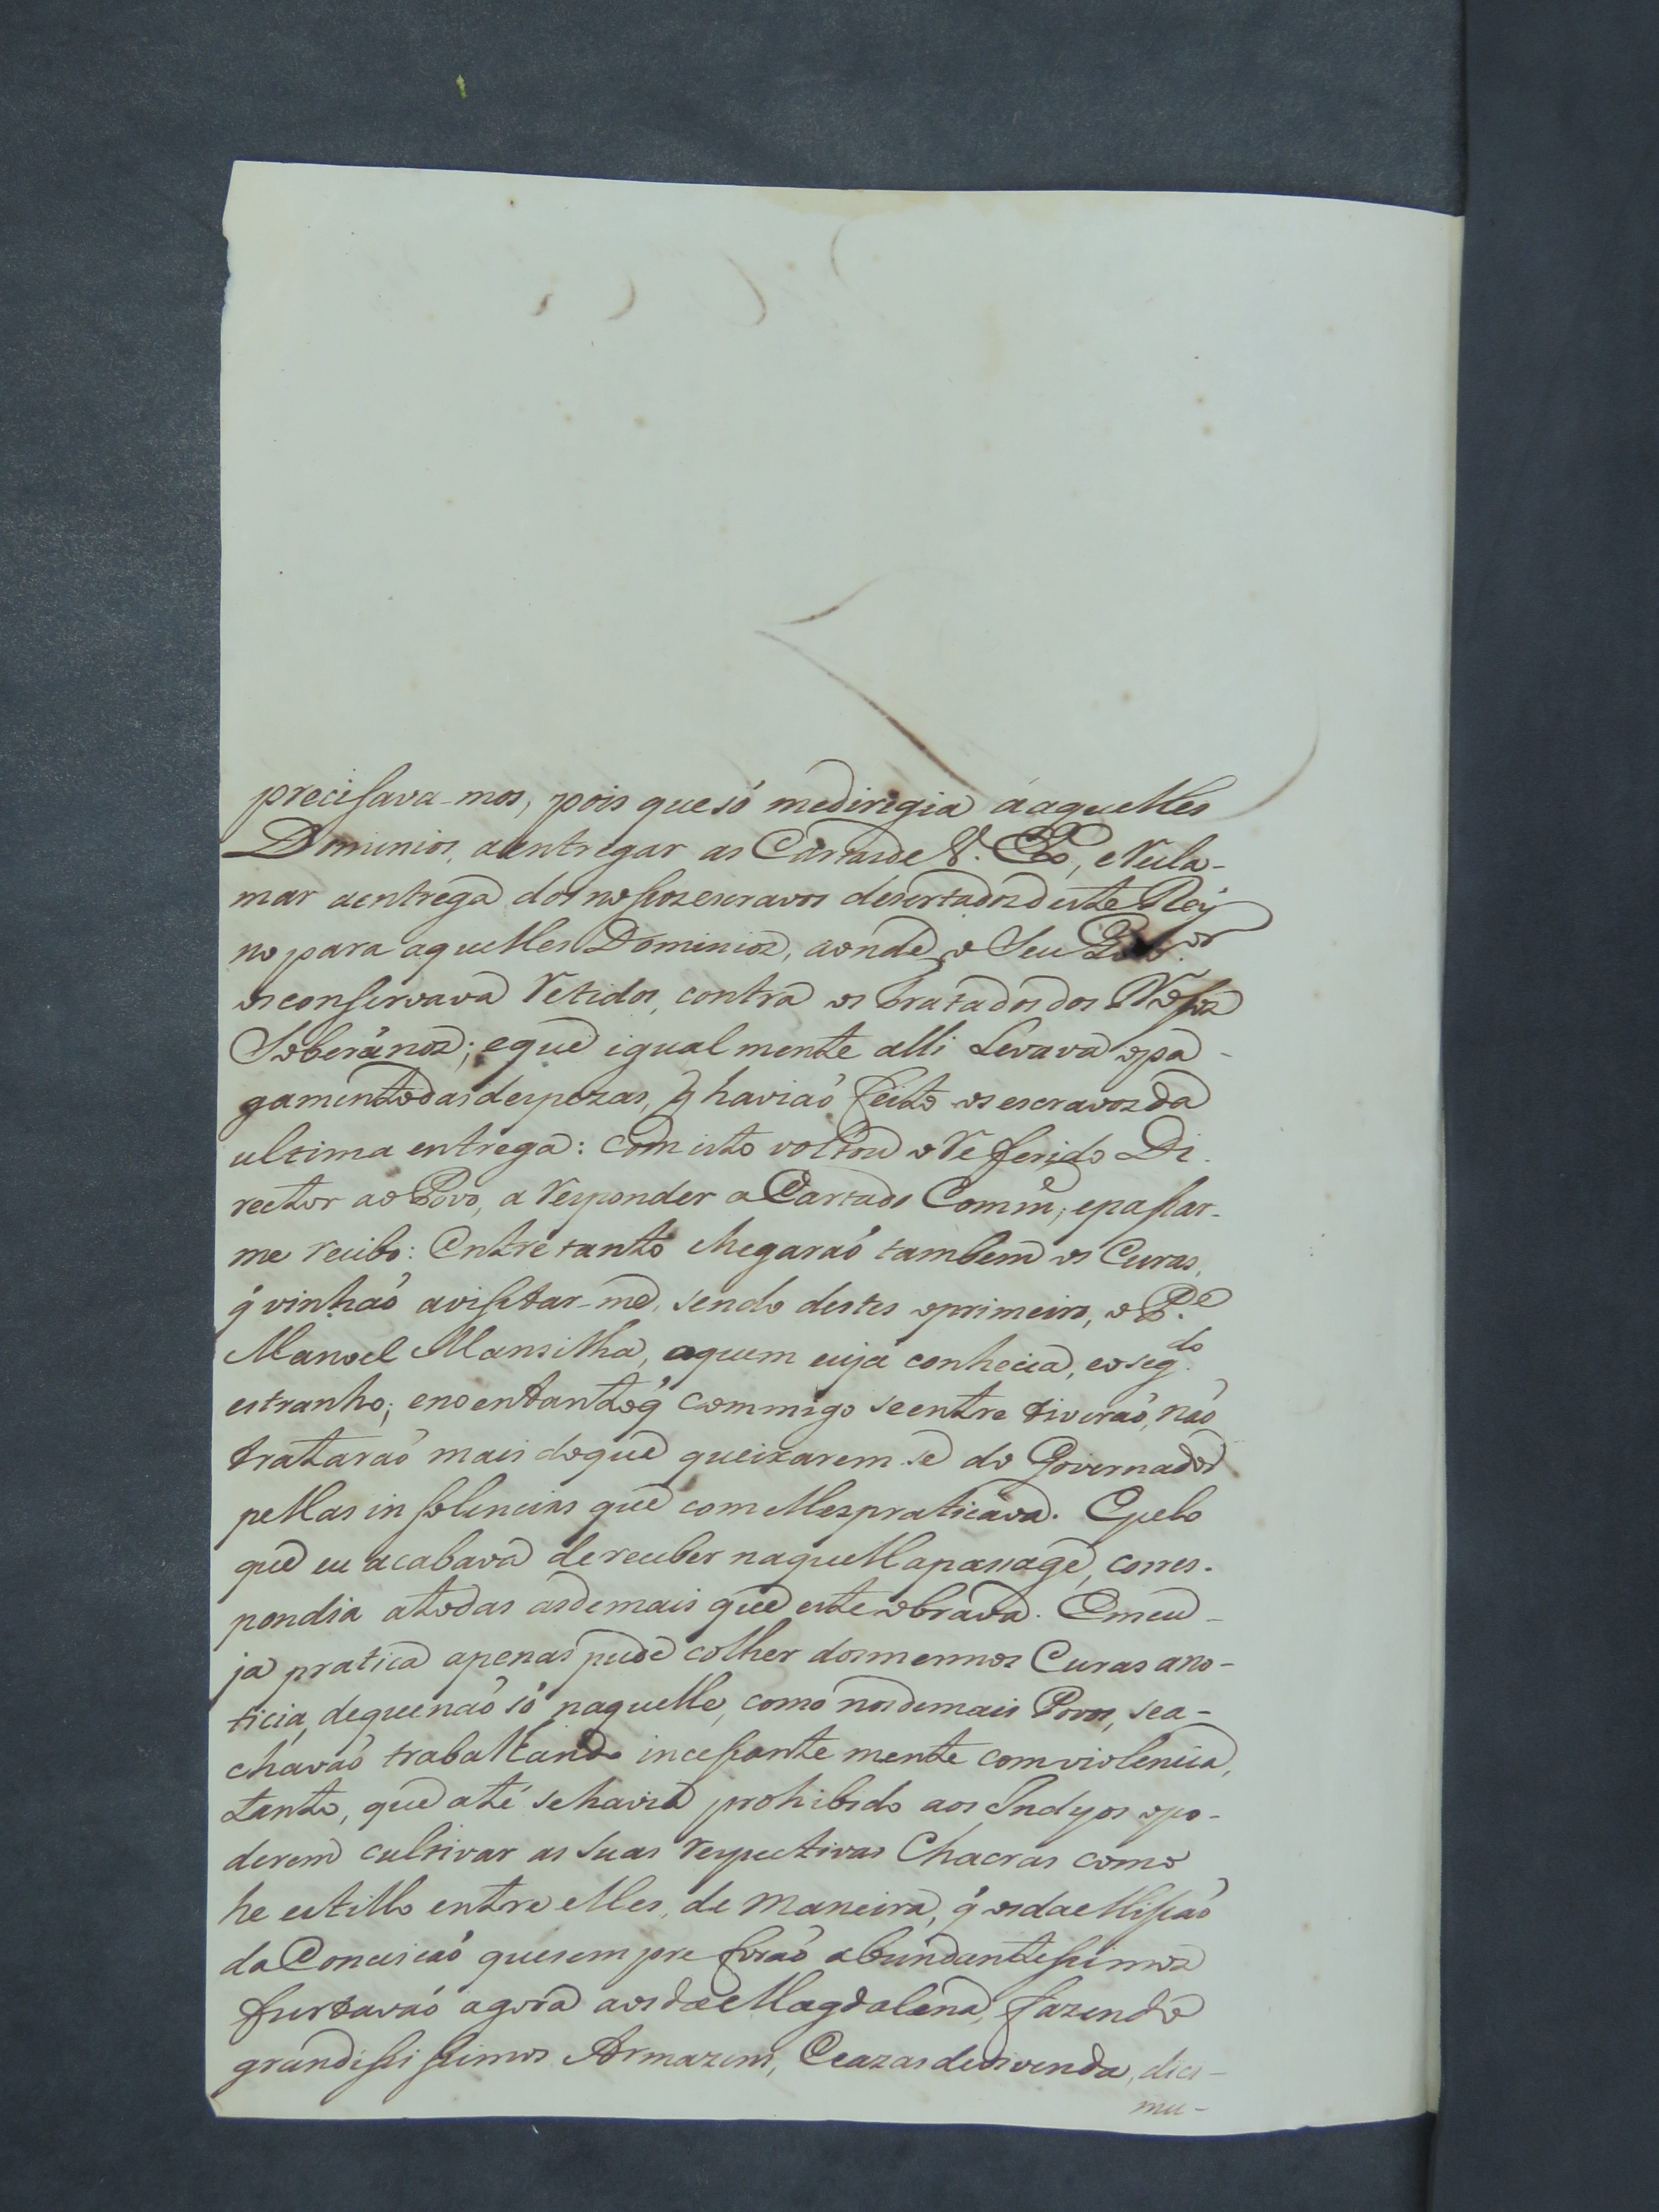 precisava-mos, pois que só medirigia áaquelles
Dominios, aentregar as Cartasde V. Exª, eRecla-
mar aentrega dos nossosescravos desertadosdeste Rey
no para aquelles Dominios, aonde o Seu Govor.
osconservava Retidos, contra os tratadosdos Nossos
Soberanos; eque igual mente alli Levava opa-
gamentodasdespezas, q̃ haviaõ feito osescravosda
ultima entrega: Com isto voltou oReferido Di-
rector ao Povo, a Responder aCartado Comm.e, epassar-
me recibo: Entretanto chegaraõ tambem os Curas,
q̃ vinhaõ avistar-me, sendo destes oprimeiro, o P.e
Manoel Mansilha, aquem euja conhecia, eoseg.do
estranho; enoentantoq̃ commigo seentre tiveraõ, naõ
trataraõ mais doque queixarem-se do Governador
pellas insolencias que comellespraticava. Epelo
que eu acabava dereceber naquellapassage, corres-
pondia atodas asdemais que este obrava. Emcu-
ja pratica apenas pude colher dosmesmos Curas ano-
ticia, dequenaõ só naquelle, como nosdemais Povos, sea-
chavaõ trabalhando incessante mente comviolencia,
tanto, que até sehavia prohibido aos Indyos opo-
derem cultivar as suas respectivas Chacras como
he estillo entre elles, de maneira, q̃ osdaMissaõ
daConceisaõ quesempre foraõ abundantessimos
furtavaõ agora aosdaMagdalena, fazendo
grandississimos Armazens, Cazasdevivenda, dici-
mu-